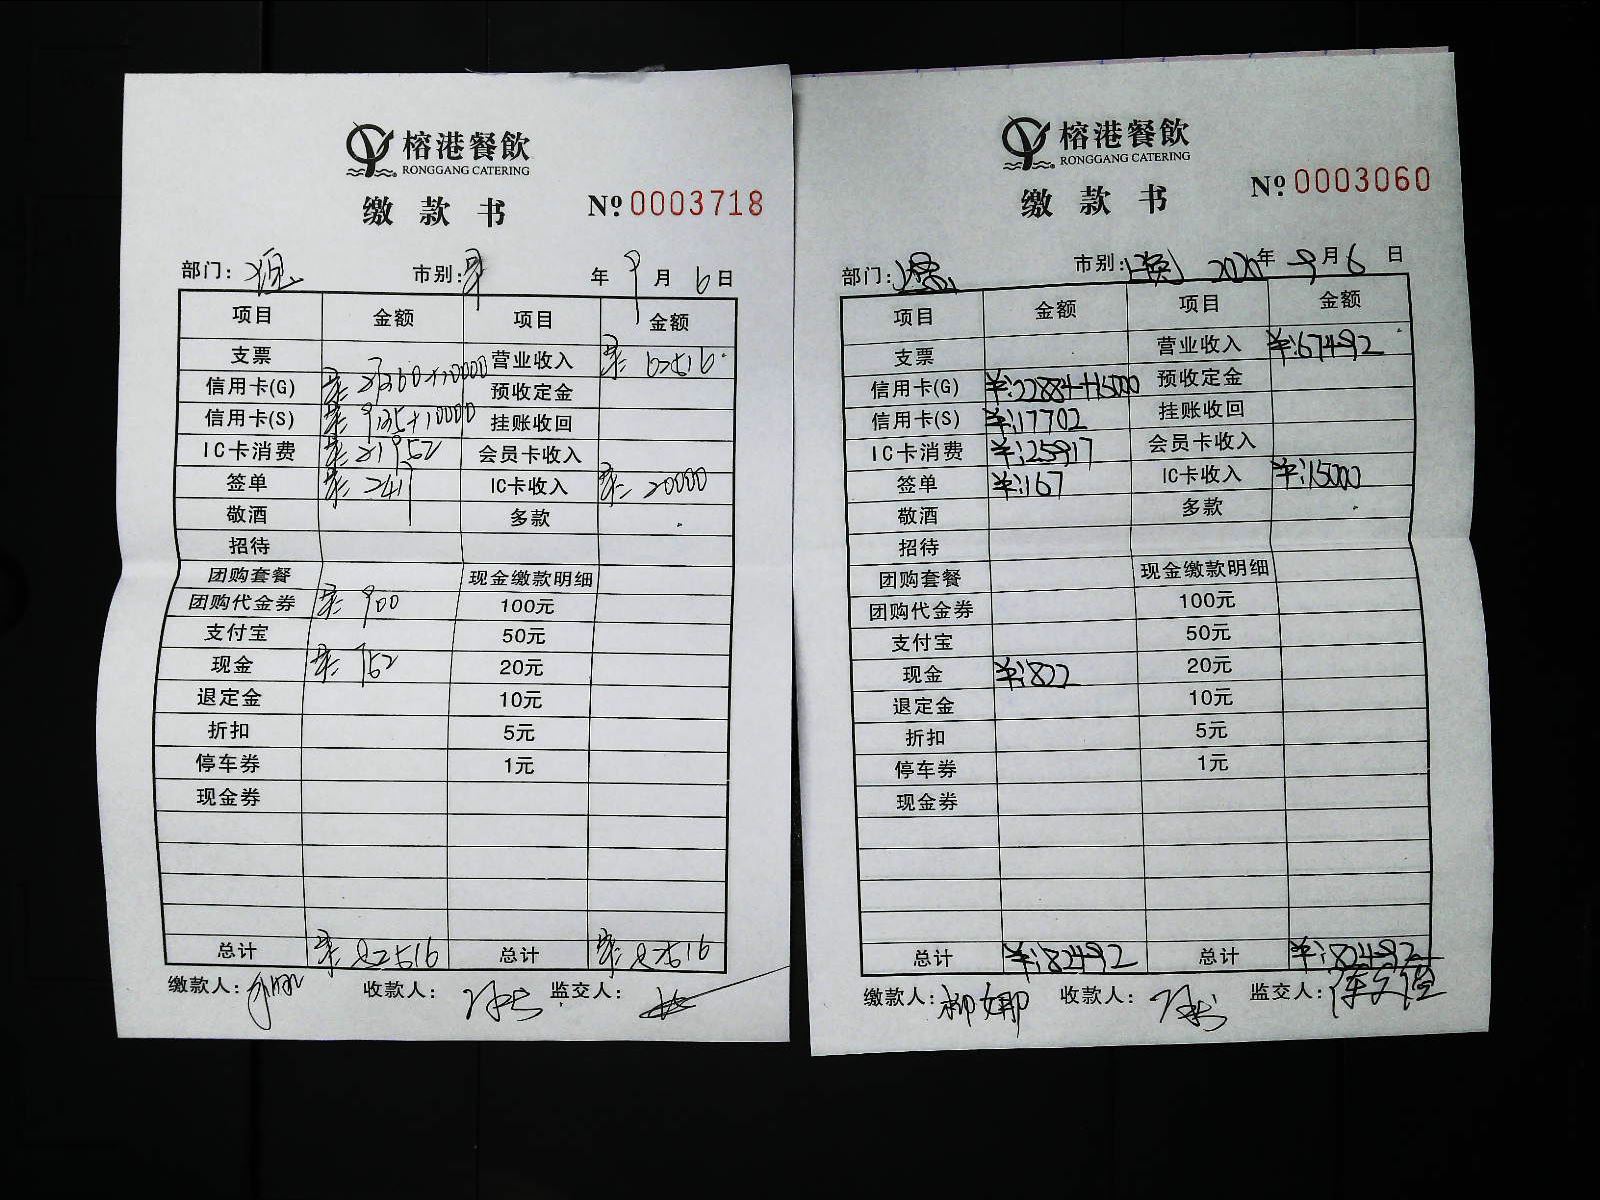 榕港餐飲
RONGGANG CATERING
缴款书 Nº 0003718
部门: 市别: 年 9月 6日
项目 金额 项目 金额
支票 营业收入 ¥: 62516
信用卡(G) ¥: 27360+10000 预收定金
信用卡(S) ¥: 9135+10000 挂账收回
IC卡消费 ¥: 21952 会员卡收入
签单 ¥: 2417 IC卡收入 ¥: 20000
敬酒 多款
招待
团购套餐 现金缴款明细
团购代金券 ¥: 900 100元
支付宝 50元
现金 ¥: 752 20元
退定金 10元
折扣 5元
停车券 1元
现金券
总计 ¥: 82516 总计 ¥: 82516
缴款人: 收款人: 监交人:
榕港餐飲
RONGGANG CATERING
缴款书 Nº 0003060
部门: 市别: 2020年 9月 6日
项目 金额 项目 金额
支票 营业收入 ¥:67492
信用卡(G) ¥:22884+15000 预收定金
信用卡(S) ¥:17702 挂账收回
IC卡消费 ¥:25917 会员卡收入
签单 ¥:167 IC卡收入 ¥:15000
敬酒 多款
招待
团购套餐 现金缴款明细
团购代金券 100元
支付宝 50元
现金 ¥:822 20元
退定金 10元
折扣 5元
停车券 1元
现金券
总计 ¥:82492 总计 ¥:82492
缴款人: 柳娜 收款人: 监交人: